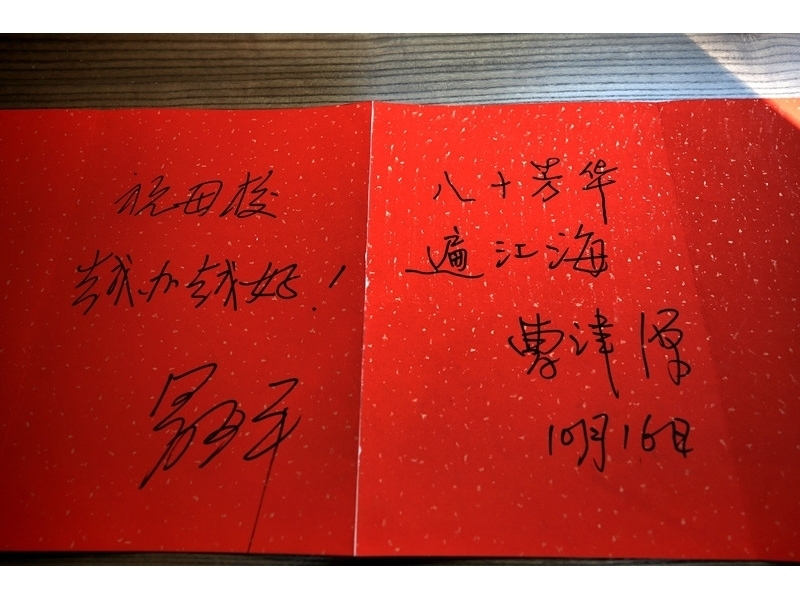 祝母校
越办越好！
八十芳华
遍江海
曹津源
10月16日